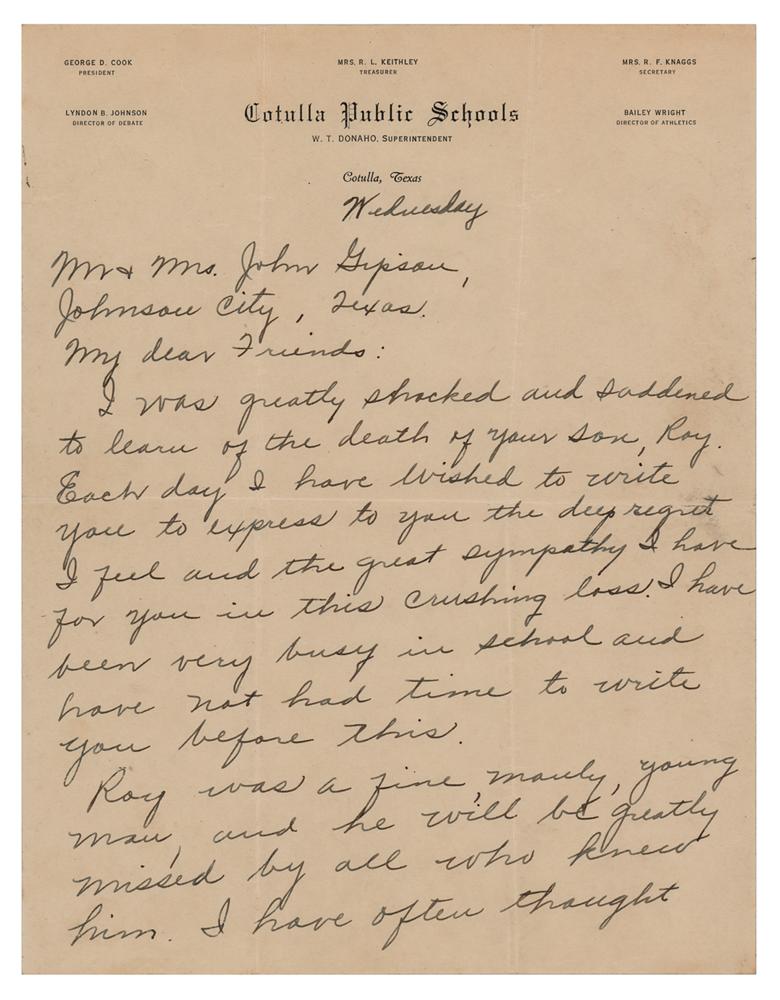 GEORGE D. COOK
PRESIDENT
MRS. R. L. KEITHLEY
TREASURER
MRS. R. F. KNAGGS
SECRETARY
LYNDON B. JOHNSON
DIRECTOR OF DEBATE
Cotulla Public Schools
W. T. DONAHO, SUPERINTENDENT
BAILEY WRIGHT
DIRECTOR OF ATHLETICS
Cotulla, Texas
Wednesday
Mr & Mrs. John Gipson,
Johnson City, Texas.
My dear Friends:
I was greatly shocked and saddened
to learn of the death of your son, Roy.
Each day I have wished to write
you to express to you the deep regret
I feel and the great sympathy I have
for you in this crushing loss. I have
been very busy in school and
have not had time to write
you before this.
Roy was a fine, manly, young
man, and he will be greatly
missed by all who knew
him. I have often thought